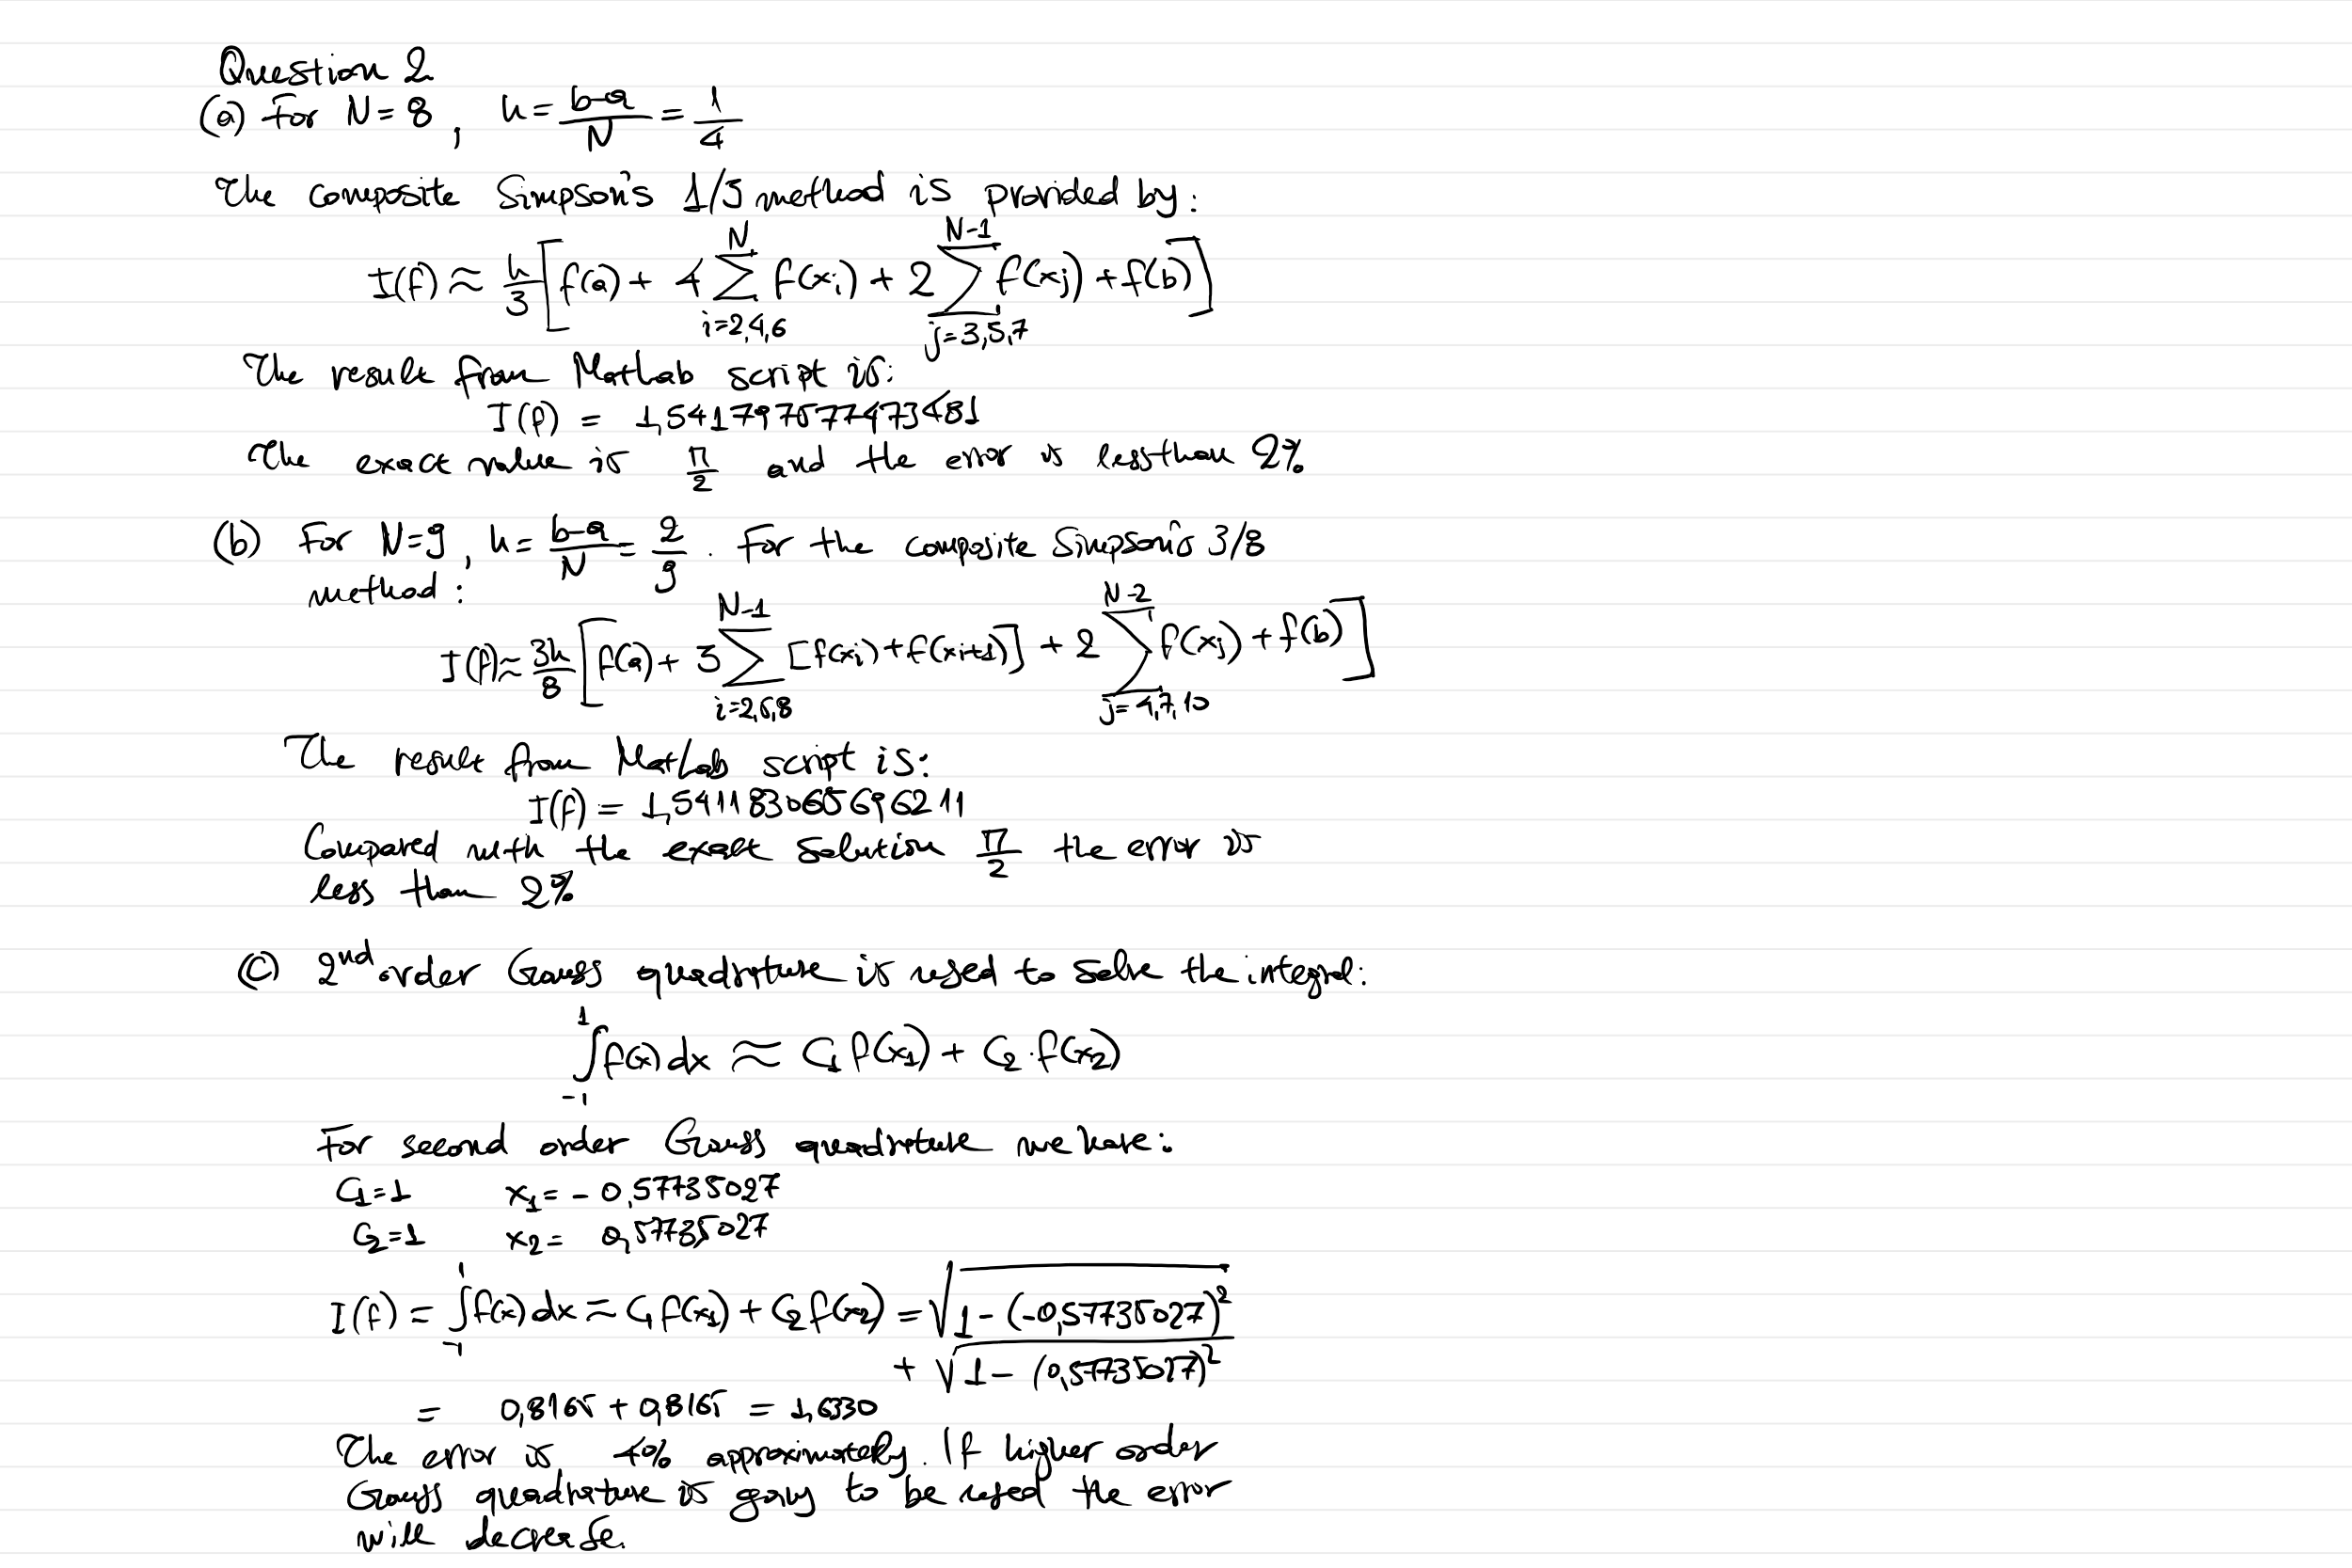 Question 2
(a) For N=8, h = (b-a)/N = 1/4
The composite Simpson's 1/3 method is provided by:
I(f) ≈ h/3 [f(a) + 4 ∑_{i=2,4,6}^{N} f(x_i) + 2 ∑_{j=3,5,7}^{N-1} f(x_j) + f(b)]
The result from Matlab script is:
I(f) = 1,541797577473481
The exact value is π/2 and the error is less than 2%
(b) For N=9, h = (b-a)/N = 2/9. For the composite Simpson's 3/8
method:
I(f) ≈ 3h/8 [f(a) + 3 ∑_{i=2,5,8}^{N-1} [f(x_i) + f(x_{i+1})] + 2 ∑_{j=4,7,10}^{N-2} f(x_j) + f(b)]
The result from Matlab script is:
I(f) = 1,541183065696211
Compared with the exact solution π/2 the error is
less than 2%
(c) 2nd order Gauss quadrature is used to solve the integral:
∫_{-1}^{1} f(x) dx ≈ C_1 f(x_1) + C_2 · f(x_2)
For second order Gauss quadrature we have:
C_1=1 x_1 = -0,57735027
C_2=1 x_2 = 0,57735027
I(f) = ∫_{-1}^{1} f(x) dx ≈ C_1 f(x_1) + C_2 f(x_2) = √(1-(-0,57735027)^2)
+ √(1-(0,57735027)^2)
= 0,8165 + 0,8165 = 1,6330
The error is 4% approximately. If higher order
Gauss quadrature is going to be used the error
will decrease.